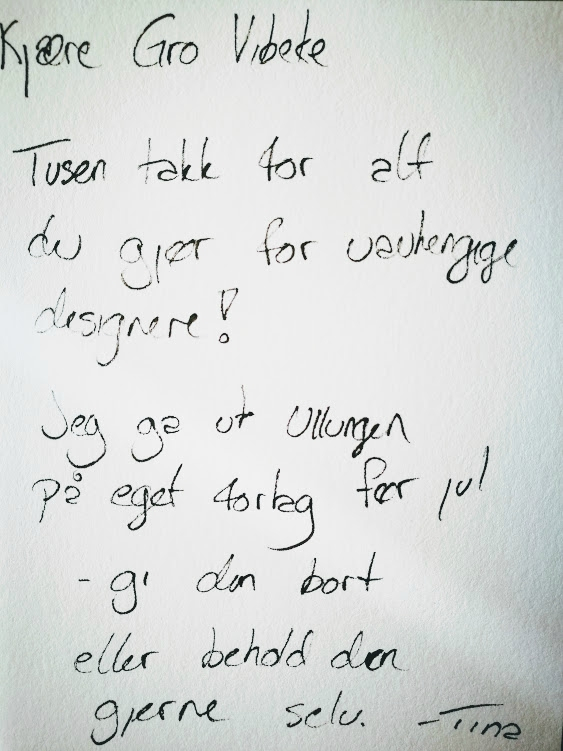 Kjære Gro Vibeke
Tusen takk for alt
du gjør for uavhengige
designere!
Jeg ga ut Ullungen
på eget forlag før jul
- gi den bort
eller behold den
gjerne selv. - Tina